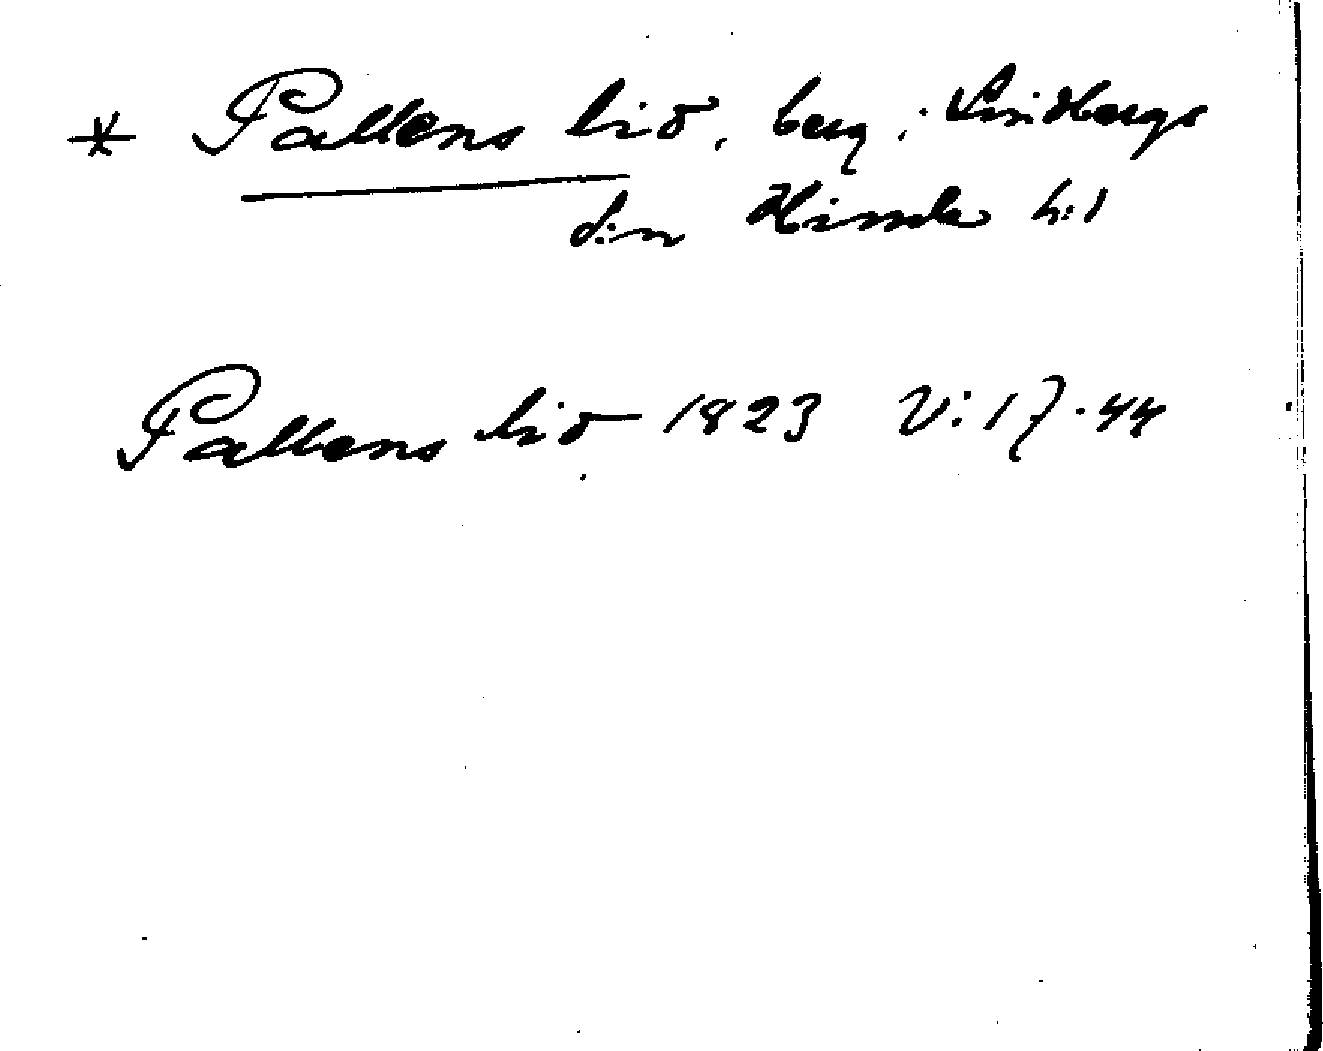 * Pallens liö, berg, i Lindbergs
s:n Himle h:d
Pallens liö 1823 V:17.44